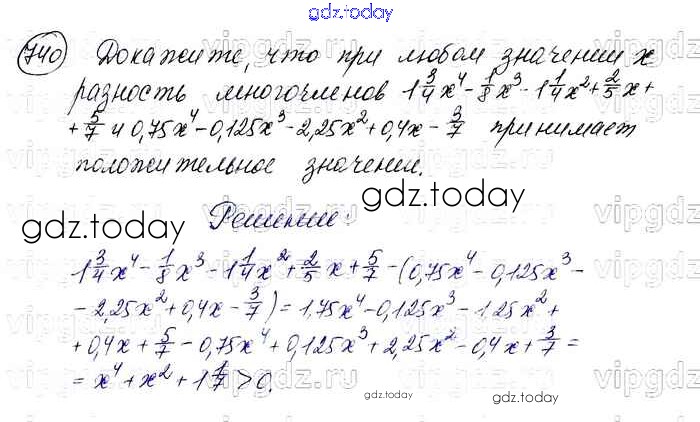 gdz.today
740 Докажите, что при любом значении x
разность многочленов 1 3/4 x⁴ - 1/8 x³ - 1 1/4 x² + 2/5 x +
+ 5/7 и 0,75x⁴ - 0,125x³ - 2,25x² + 0,4x - 3/7 принимает
положительное значение.
gdz.today
gdz.today
Решение:
1 3/4 x⁴ - 1/8 x³ - 1 1/4 x² + 2/5 x + 5/7 - (0,75x⁴ - 0,125x³ -
- 2,25x² + 0,4x - 3/7) = 1,75x⁴ - 0,125x³ - 1,25x² +
+ 0,4x + 5/7 - 0,75x⁴ + 0,125x³ + 2,25x² - 0,4x + 3/7 =
= x⁴ + x² + 1 1/7 > 0.
gdz.today
gdz.today
vipgdz.ru